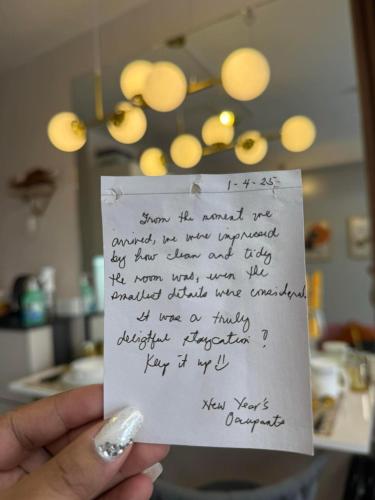 1-4-25
From the moment we
arrived, we were impressed
by how clean and tidy
the room was, even the
smallest details were considered.
It was a truly
delightful staycation!
Keep it up!!
New Year's
Occupants